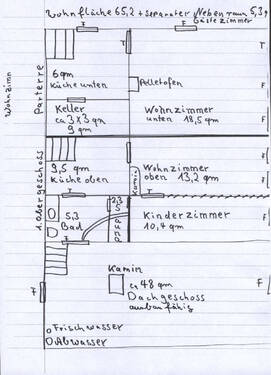 Wohnfläche 65,2 + separater Nebenraum 5,3
Gästezimmer
F
F
Wohnzimm
Parterre
T
T
6qm
Küche unten
Pelletofen
Keller
ca 3x3 qm
9 qm
Wohnzimmer
unten 18,5 qm
F
F
F
1. Obergeschoss
9,5 qm
Küche oben
Kamin
Wohnzimmer
oben 13,2 qm
F
T
T
5,3
Bad
2,3
Kinderzimmer
10,4 qm
F
T
F
Kamin
ca 48 qm
Dachgeschoss
ausbaufähig
F
Frischwasser
Abwasser